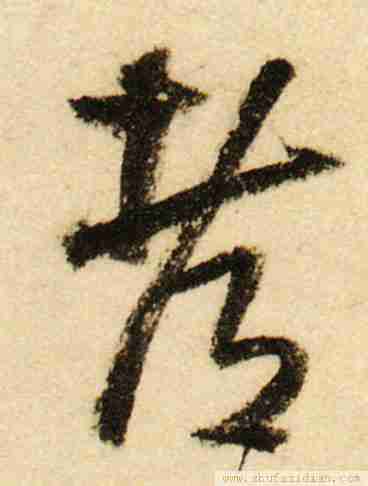 考
www.shufazidian.com